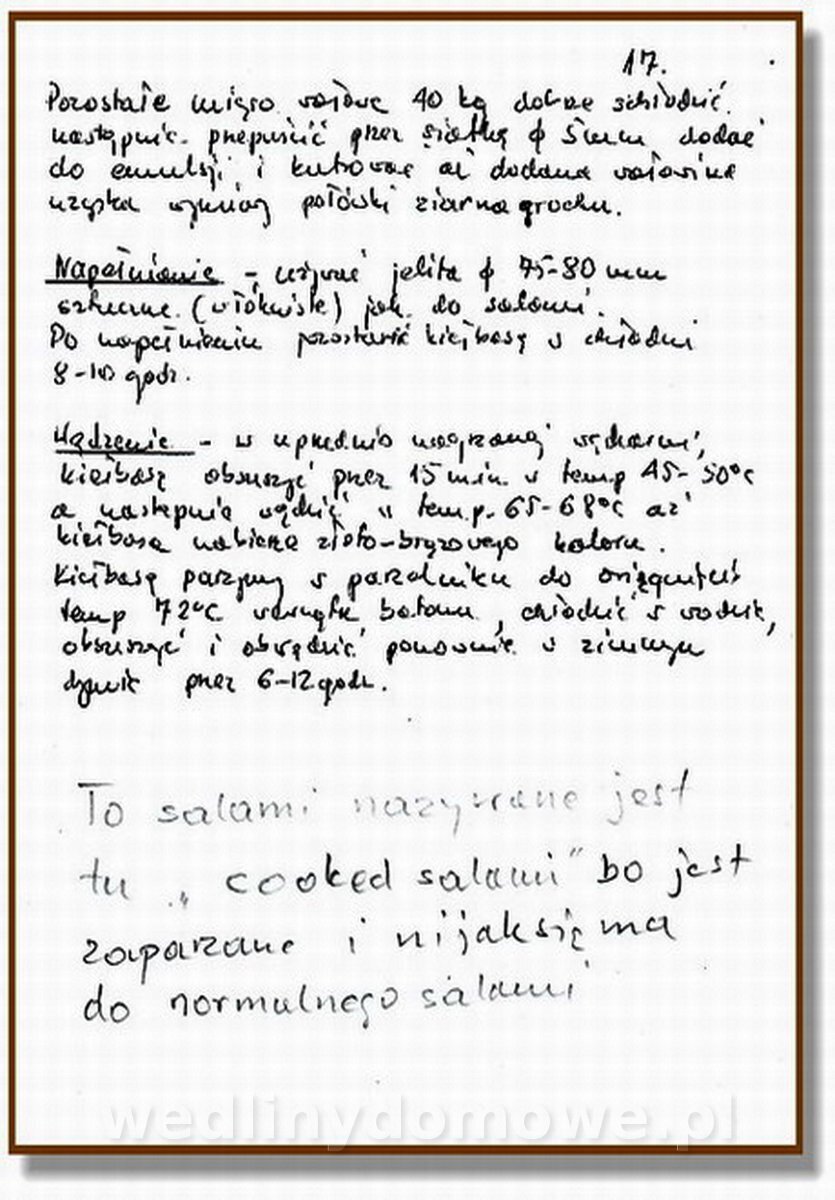 17.
Pozostałe mięso wołowe 40 kg dobrze schłodzić
następnie przepuścić przez siatkę φ 5mm dodać
do emulsji i kutrować aż dodana wołowina
uzyska wymiary połówki ziarna grochu.
Napełnianie - używać jelita φ 75-80 mm
sztuczne (włókniste) jak do salami.
Po napełnieniu pozostawić kiełbasę w chłodni
8-10 godz.
Wędzenie - w uprzednio nagrzanej wędzarni,
kiełbasę obsuszyć przez 15 min w temp 45-50°C
a następnie wędzić w temp. 65-68°C aż
kiełbasa nabierze złoto-brązowego koloru.
Kiełbasę parzymy w parzelniku do osiągnięcia
temp 72°C wewnątrz batonu, chłodzić w wodzie,
obsuszyć i obwędzić ponownie w zimnym
dymie przez 6-12 godz.
To salami nazywane jest
tu „cooked salami" bo jest
zaparzane i nijak się ma
do normalnego salami
wedlinydomowe.pl